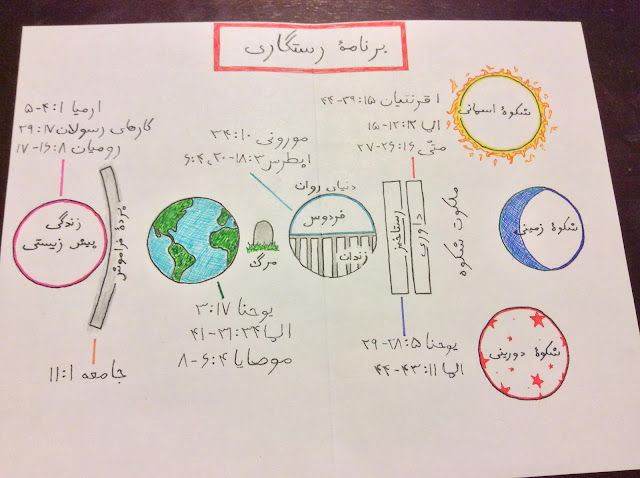 برنامهٔ رستگاری
ارمیا ۱:۴-۵
کارهای رسولان ۱۷:۲۹
رومیان ۸:۱۶-۱۷
مورونی ۱۰:۳۴
۱پطرس ۳:۱۸-۲۰، ۴:۶
۱قرنتیان ۱۵:۳۹-۴۴
الما ۱۲:۱۲-۱۵
متّی ۱۶:۲۶-۲۷
شکوهٔ آسمانی
زندگی
پیش زیستی
پردهٔ فراموشی
مرگ
دنیای روان
فردوس
زندان
رستاخیز
داوری
ملکوت شکوه
شکوهٔ زمینی
یوحنا ۱۷:۳
الما ۳۴:۳۱-۴۱
موصایا ۴:۶-۸
یوحنا ۵:۲۸-۲۹
الما ۱۱:۴۳-۴۴
شکوهٔ دورینی
جامعه ۱:۱۱